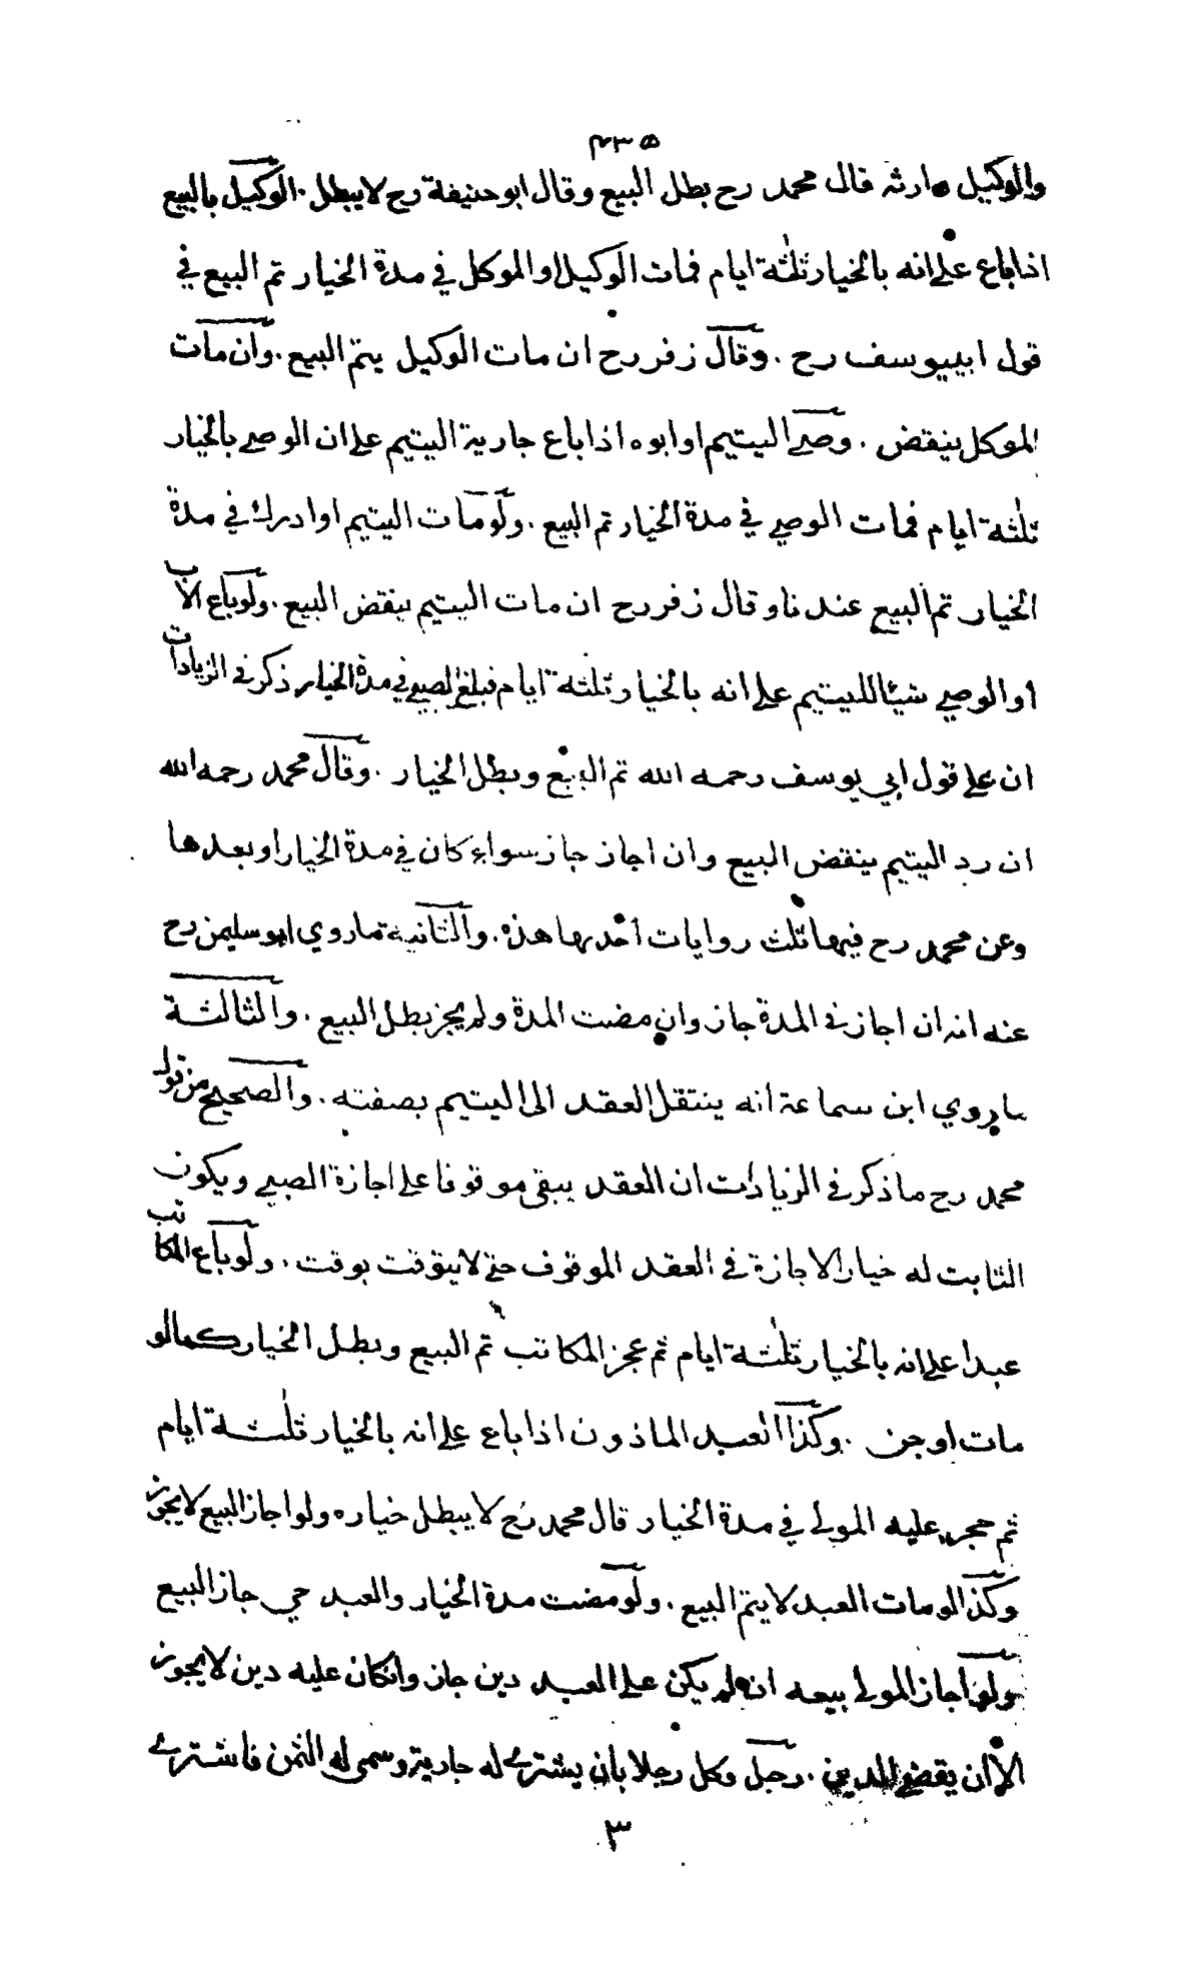 ٤٣٥
والوكيل وارثه قال محمد رح بطل البيع وقال ابو حنيفة رح لا يبطل . الوكيل بالبيع
اذا باع على انه بالخيار ثلثة ايام فمات الوكيل او الموكل في مدة الخيار تم البيع في
قول ابييوسف رح . وقال زفر رح ان مات الوكيل يتم البيع . وان مات
الموكل ينقض . وصي اليتيم او ابوه اذا باع جارية اليتيم على ان الوصي بالخيار
ثلثة ايام فمات الوصي في مدة الخيار تم البيع . ولو مات اليتيم او ادرك في مدة
الخيار تم البيع عندنا وقال زفر رح ان مات اليتيم ينقض البيع . ولو باع الاب
او الوصي شيئا لليتيم على انه بالخيار ثلثة ايام فبلغ الصبي في مدة الخيار ذكر في الزيادات
ان على قول ابي يوسف رحمه الله تم البيع وبطل الخيار . وقال محمد رحمه الله
ان رد اليتيم ينقض البيع وان اجاز جاز سواء كان في مدة الخيار او بعدها
وعن محمد رح فيها ثلث روايات احدىها هذه . والثانية ما روي ابو سليمن رح
عنه انه ان اجاز في المدة جاز وان مضت المدة ولم يجز بطل البيع . والثالثة
ما روي ابن سماعة انه ينتقل العقد الى اليتيم بصفته . والصحيح من قول
محمد رح ما ذكر في الزيادات ان العقد يبقى موقوفا على اجازة الصبي ويكون
الثابت له خيار الاجازة في العقد الموقوف حتى لا يتوقت بوقت . ولو باع المكاتب
عبدا على انه بالخيار ثلثة ايام ثم عجز المكاتب تم البيع وبطل الخيار كما لو
مات او جن . وكذا العبد الماذون اذا باع على انه بالخيار ثلثة ايام
ثم حجر عليه المولى في مدة الخيار قال محمد رح لا يبطل خياره ولو اجاز البيع لا يجوز
وكذا لو مات العبد لا يتم البيع . ولو مضت مدة الخيار والعبد حي جاز البيع
ولو اجاز المولى بيعه ان لم يكن على العبد دين جاز وانكان عليه دين لا يجوز
الا ان يقضي الدين . رجل وكل رجلا بان يشتري له جارية وسمى له الثمن فاشترى
٣